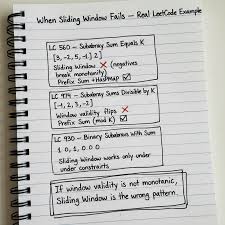 When Sliding Window Fails – Real LeetCode Example
LC 560 – Subarray Sum Equals K
[3, -2, 5, -1,] 2]
Sliding Window ❌ (negatives
break monotonity)
Prefix Sum + HashMap ☑
LC 974 – Subarray Sums Divisible by K
[-1, 2, 3, -2]
Window validity flips ❌
Prefix Sum (mod K) ☑
LC 930 – Binary Subarrays With Sum
1 0, 1, 0, 0 0
Sliding Window works only under
under constraints
If window validity is not monotanic,
Sliding Window is the wrong pattern.